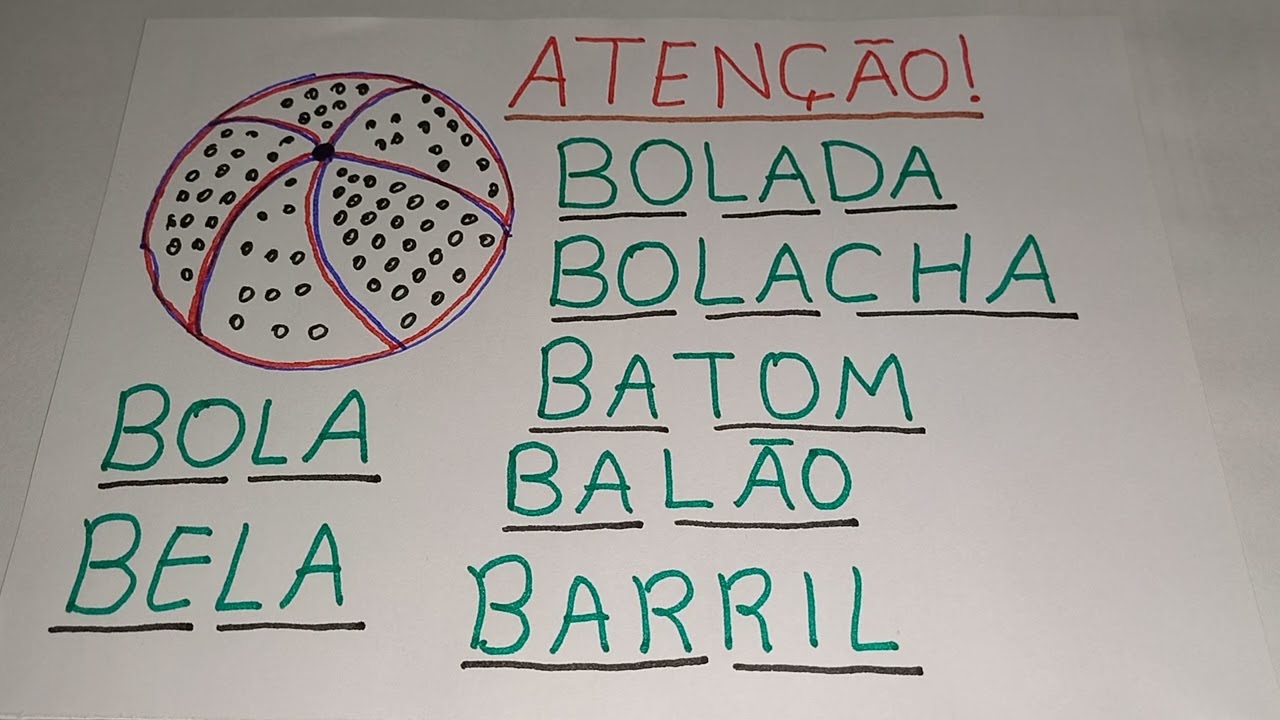 ATENÇÃO!
BOLADA
BOLACHA
BATOM
BALÃO
BARRIL
BOLA
BELA